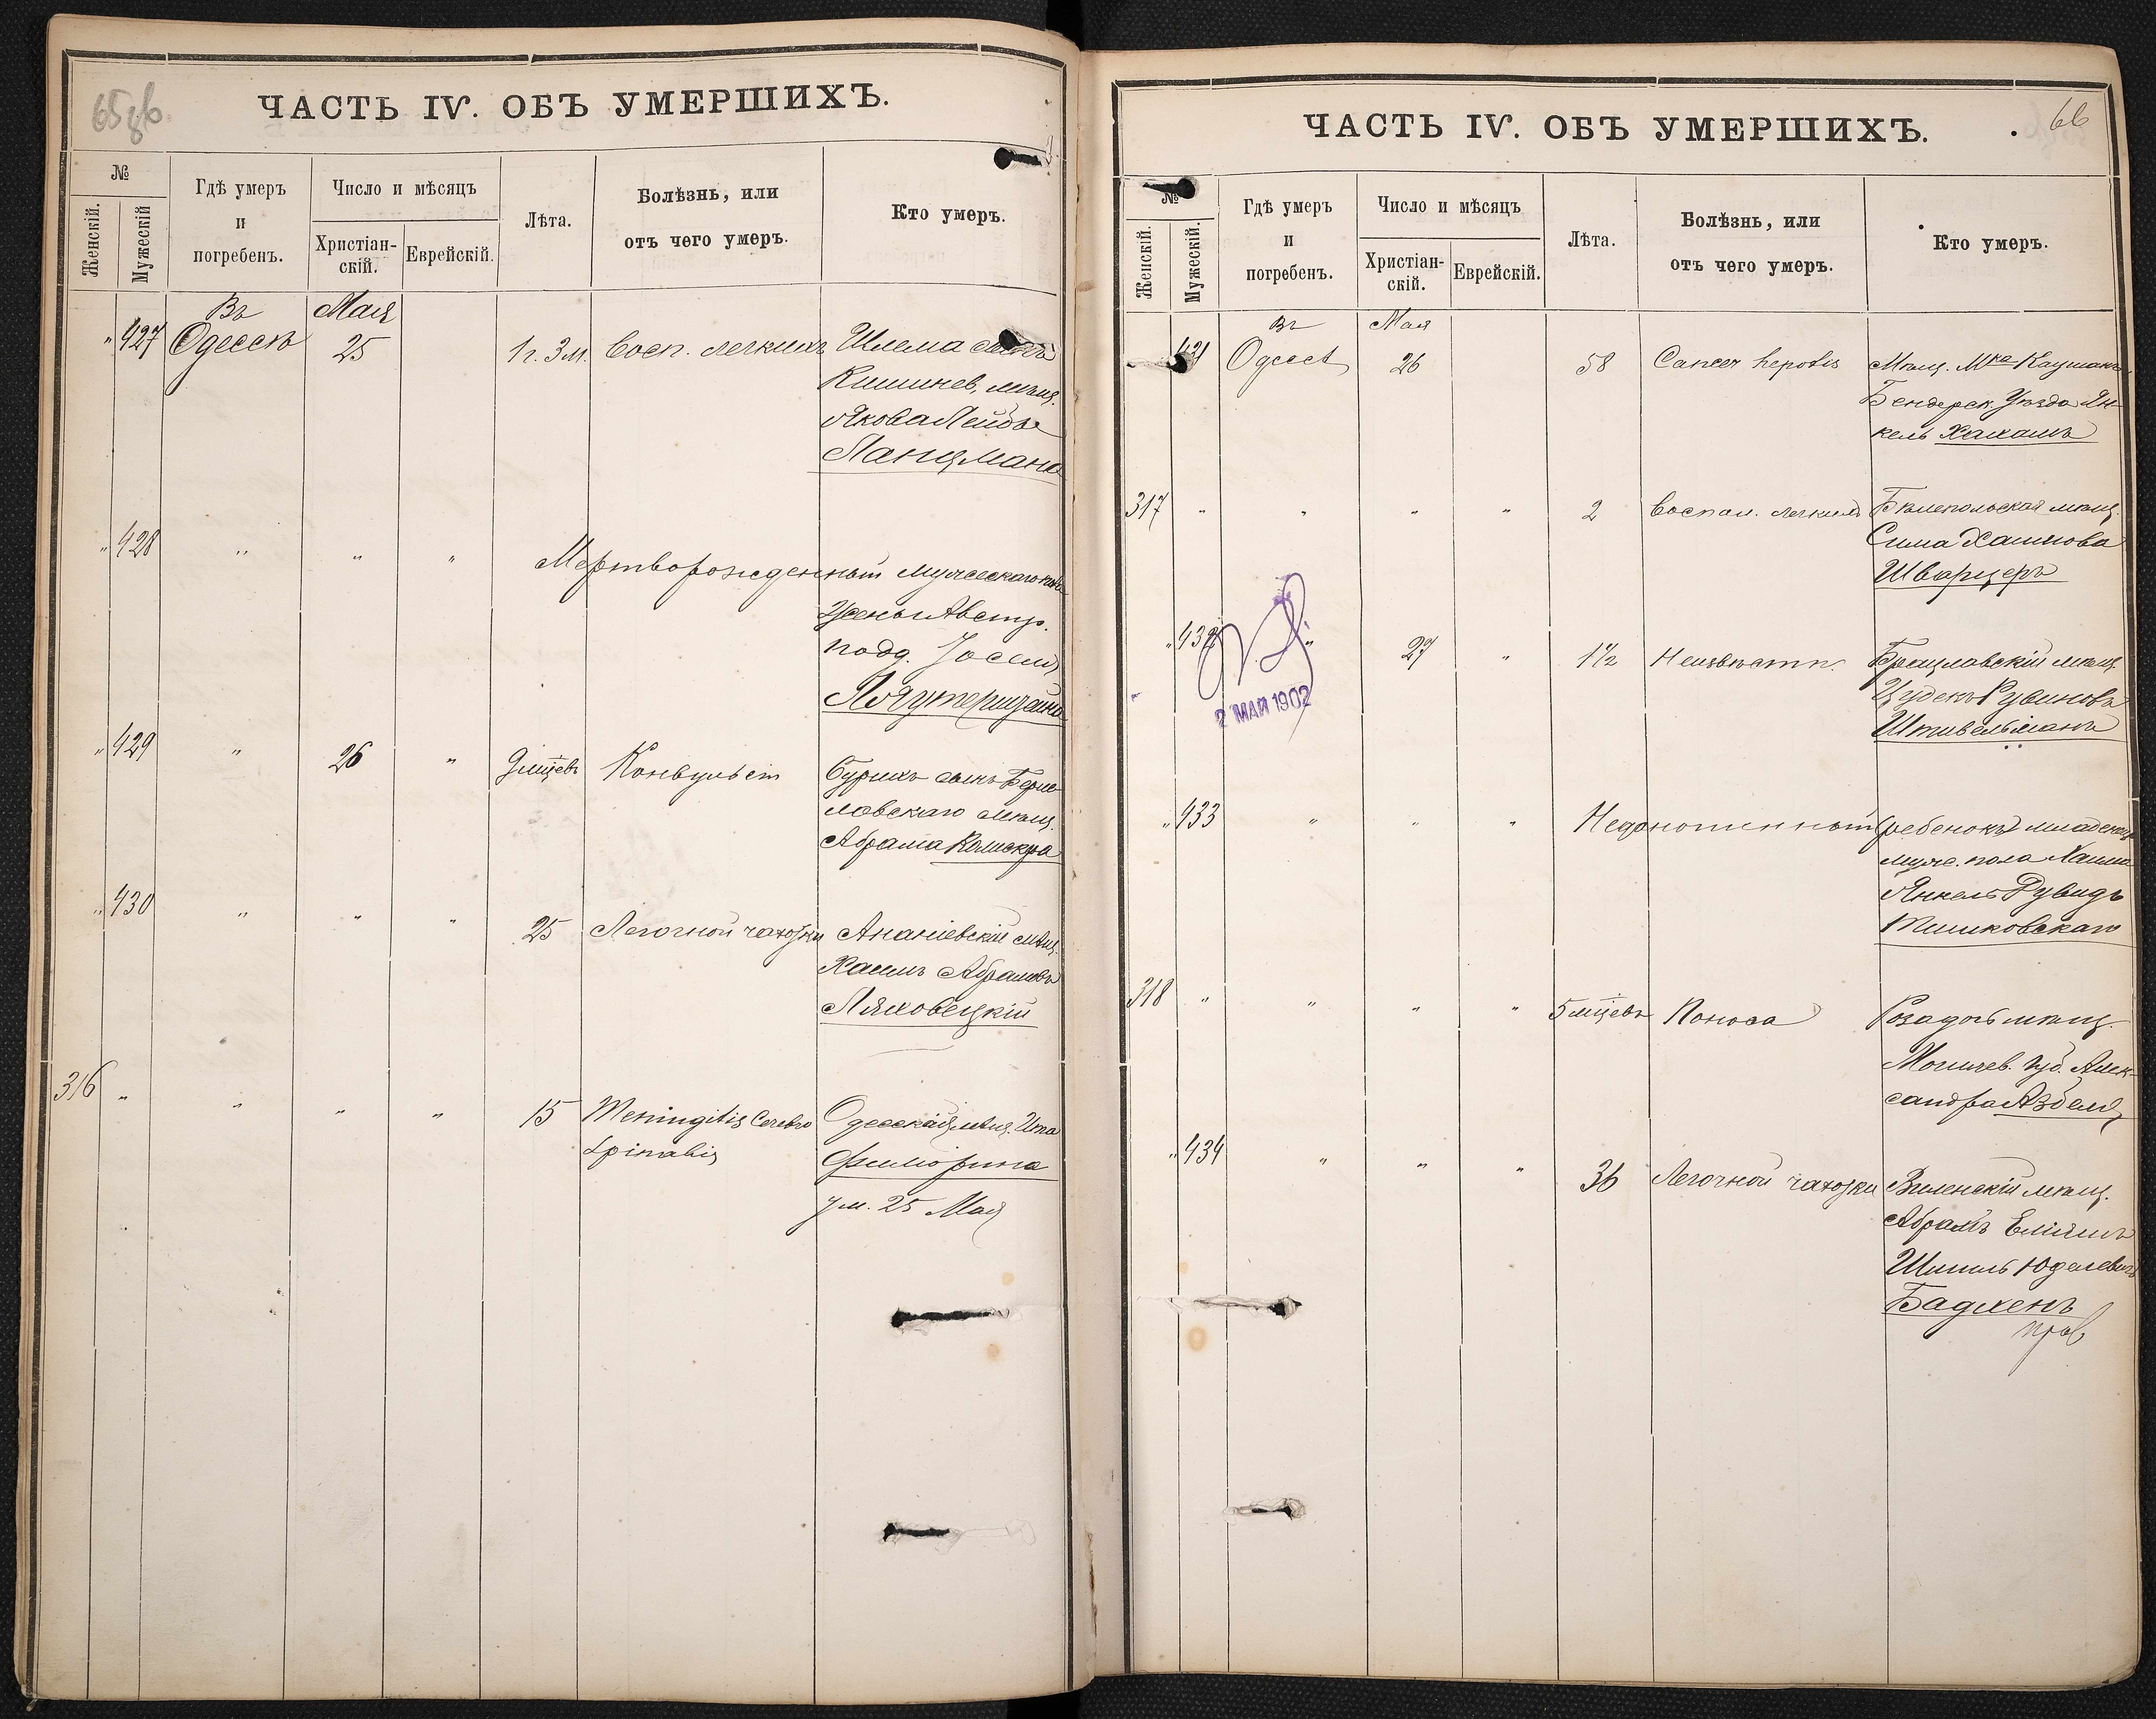 65 об
ЧАСТЬ IV. ОБЪ УМЕРШИХЪ.
№
Женскій.
Мужескій
Гдѣ умеръ
и
погребенъ.
Число и мѣсяцъ
Христіан-
скій.
Еврейскій.
Лѣта.
Болѣзнь, или
отъ чего умеръ.
Кто умеръ.
Въ Мая
" 427 Одессѣ 25 1 г. 3 м. Восп. легкихъ Шлема сынъ
Кишинев. мѣщ.
Якова Лейбы
Ланцмана
" 428 " " " Мертворожденный мужескаго пола
Жены Австр.
подд. Іоселя
" 429 " 26 " 9 мѣцевъ Конвульсіи Бурихъ сынъ Бери-
славскаго мѣщ.
Абрама
" 430 " " " 25 Легочной чахотки Ананіевскій мѣщ.
Хаимъ Абрамовъ
Ляховецкій
316 " " " " 15 Meningitis Cerebro Одесская мѣщ. Ита
Spinalis
ум. 25 Мая
66
ЧАСТЬ IV. ОБЪ УМЕРШИХЪ.
№
Женскій.
Мужескій.
Гдѣ умеръ
и
погребенъ.
Число и мѣсяцъ
Христіан-
скій.
Еврейскій.
Лѣта.
Болѣзнь, или
отъ чего умеръ.
Кто умеръ.
Въ Мая
431 Одессѣ 26 58 Cancer hepatis Мѣщ. Мка Каушанъ
Бендерск. Уѣзда Ян-
кель Хахамъ
317 " " " " 2 Воспал. легкихъ мѣщ.
Сима Хаимова
Шварцеръ
" 432 " 27 " 1 1/2 Неизвѣстн. Брацлавскій мѣщ.
Рувиновъ
Штивельманъ
2 МАЙ 1902
" 433 " " " Недоношенный (ребенокъ) младенецъ
муж. пола Хаима
Янкель
Тишковскаго
318 " " " " 5 мѣцевъ Поноса Роза дочь мѣщ.
Могилев. губ. Алек-
сандра Азбеля
" 434 " " " 36 Легочной чахотки Виленскій мѣщ.
Абрамъ
Шмиль Юделевичъ
Бадхенъ